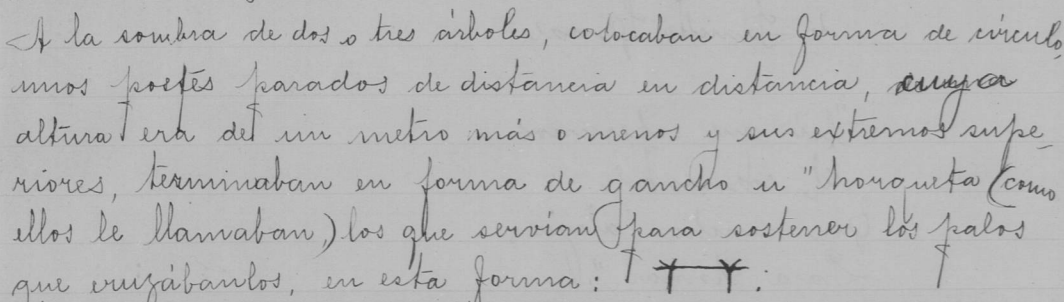 A la sombra de dos o tres árboles, colocaban en forma de círculo,
unos postes parados de distancia en distancia, cuya
altura era de un metro más o menos y sus extremos supe-
riores, terminaban en forma de gancho u "horqueta (como
ellos le llamaban,) los que servían para sostener los palos
que cruzábanlos, en esta forma: